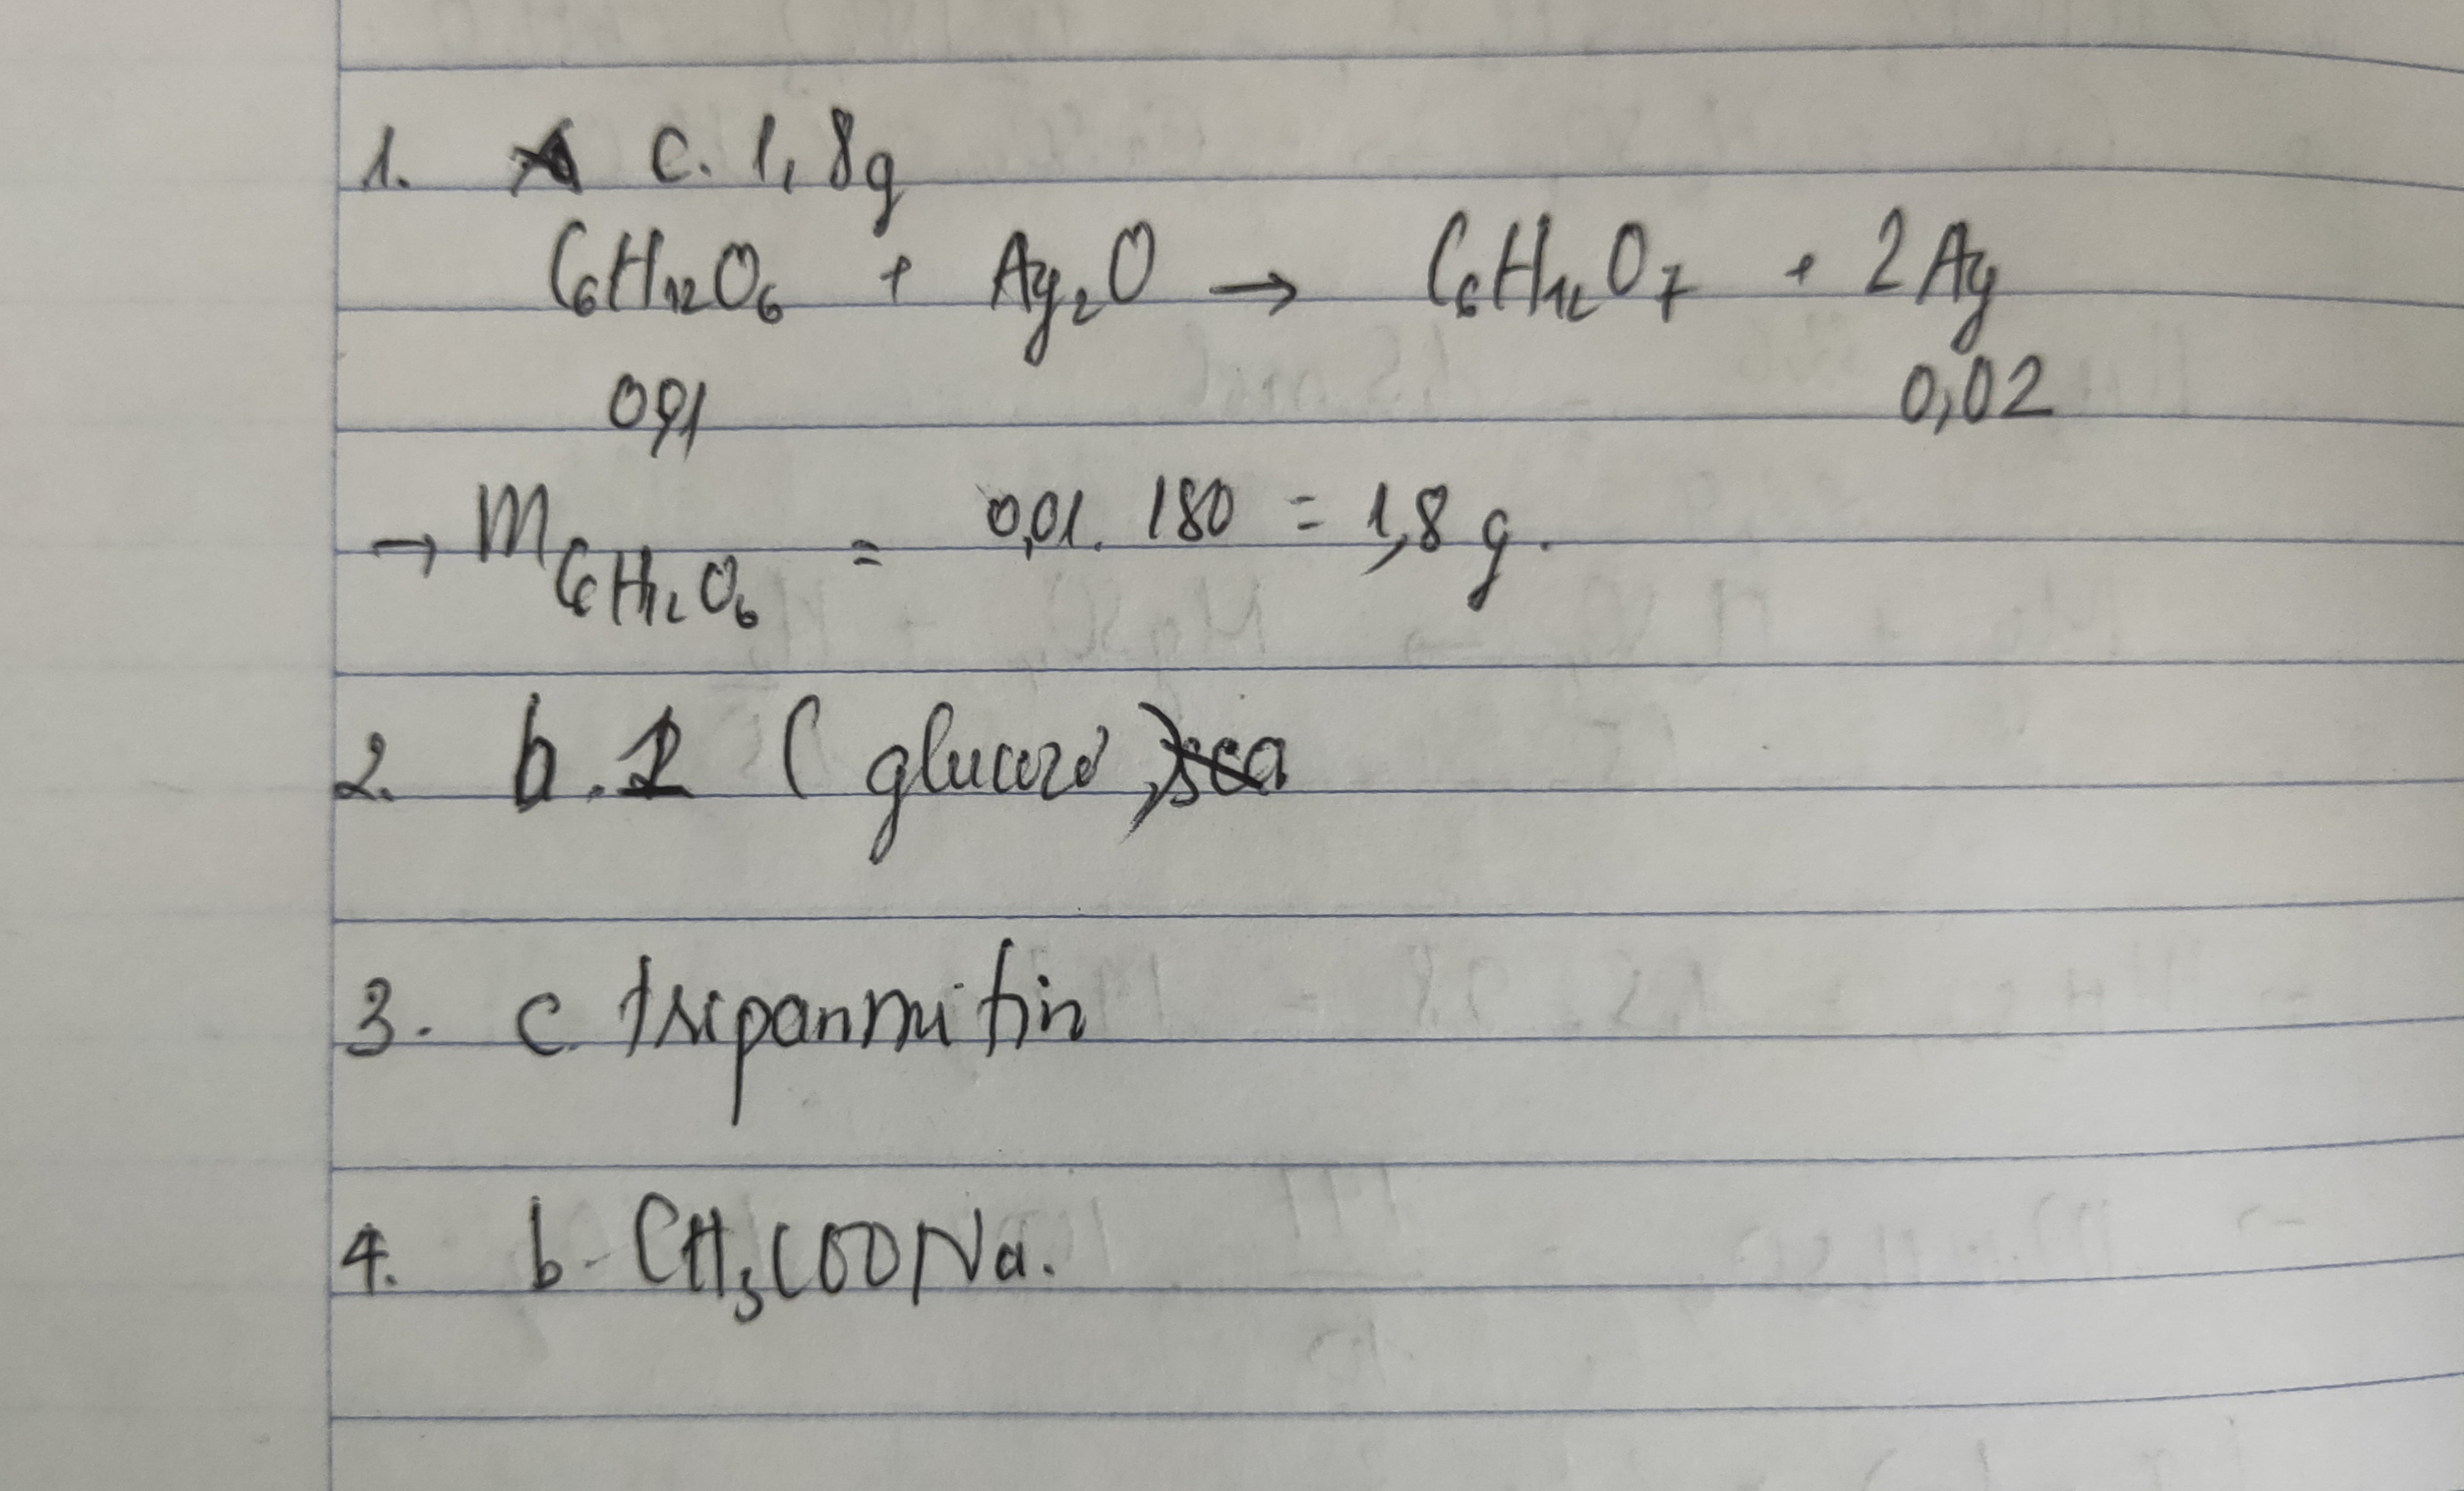 1. c. 1,8g
C₆H₁₂O₆ + Ag₂O → C₆H₁₂O₇ + 2Ag
0,01 0,02
→ m C₆H₁₂O₆ = 0,01. 180 = 1,8 g.
2. b. 1 (glucozơ)
3. c. tripanmitin
4. b. CH₃COONa.